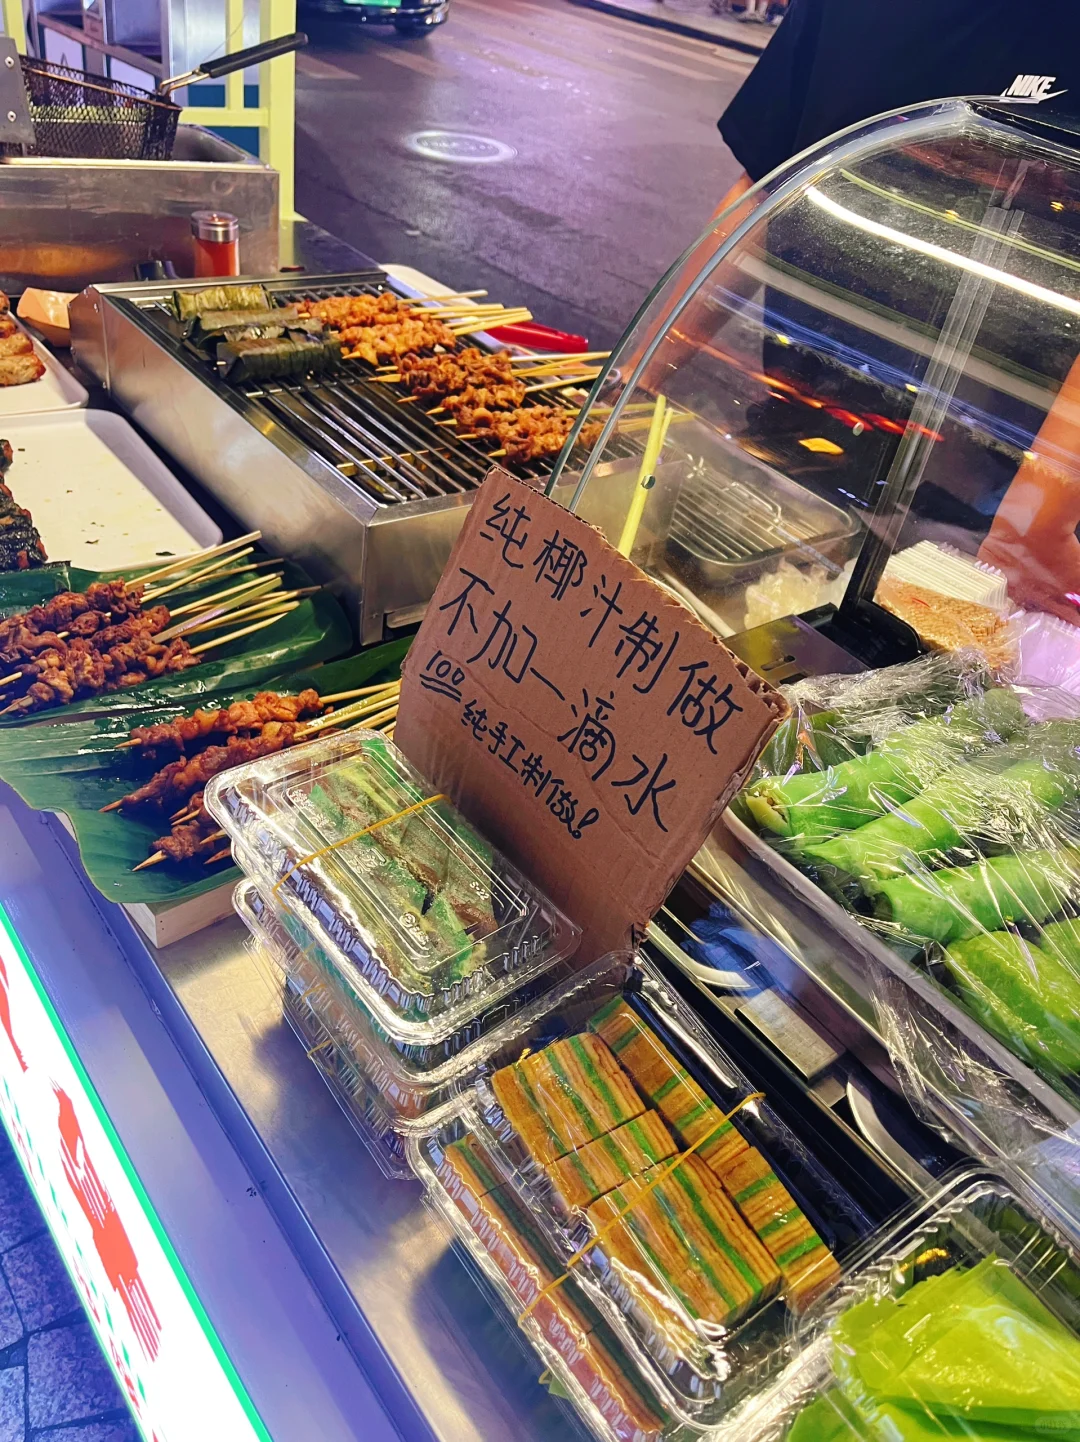 NIKE
纯椰汁制做
不加一滴水
100
纯手工制做!